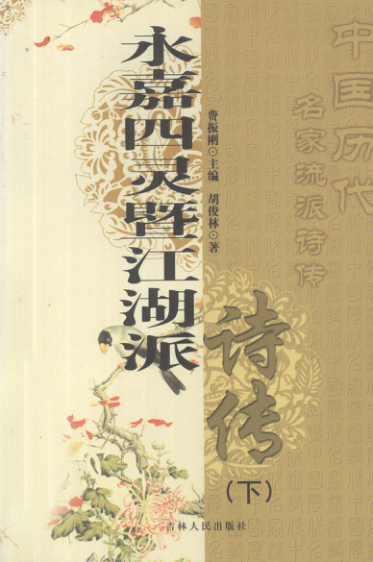 中国历代
名家流派诗传
永嘉四灵暨江湖派
诗传
（下）
费振刚·主编 胡俊林·著
吉林人民出版社